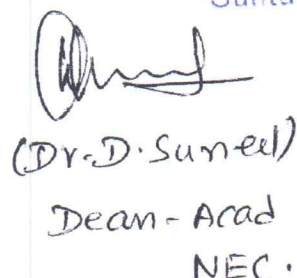 (Dr. D. Suneel)
Dean - Acad
NEC.